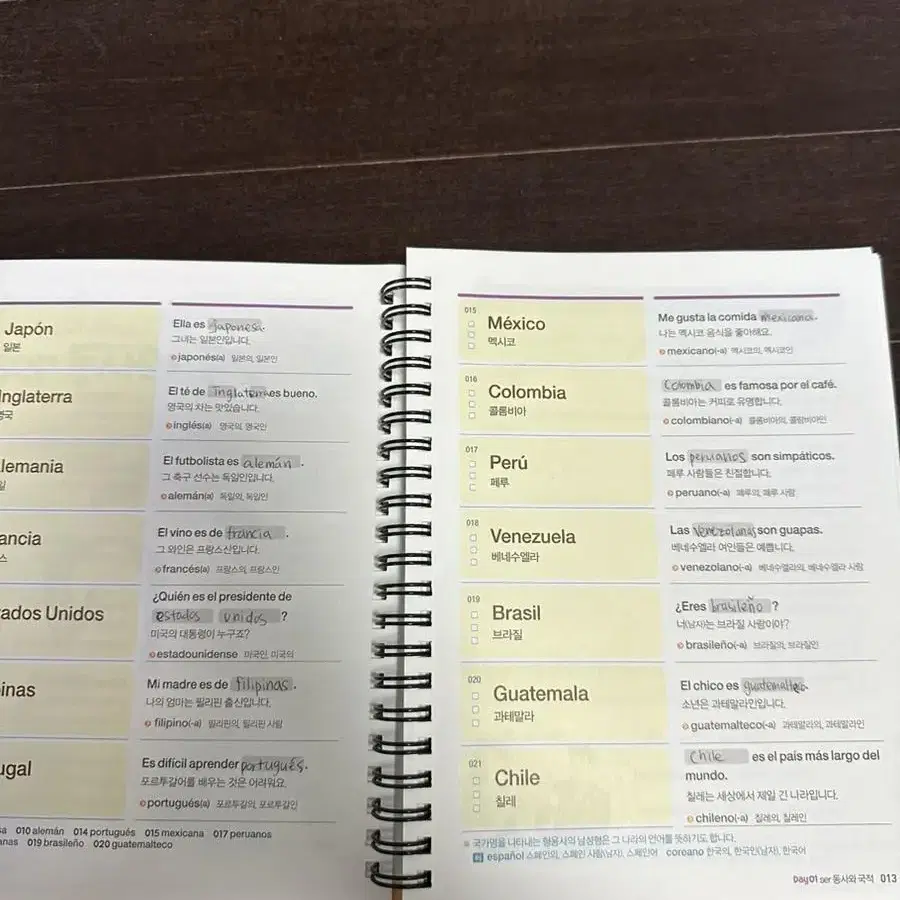 Japón
일본
Ella es japonesa.
그녀는 일본인입니다.
japonés(a) 일본의, 일본인
Inglaterra
영국
El té de inglaterra es bueno.
영국의 차는 맛있습니다.
inglés(a) 영국의, 영국인
lemania
일
El futbolista es alemán.
그 축구 선수는 독일인입니다.
alemán(a) 독일의, 독일인
ancia
스
El vino es de francia.
그 와인은 프랑스산입니다.
francés(a) 프랑스의, 프랑스인
tados Unidos
¿Quién es el presidente de
estados unidos ?
미국의 대통령이 누구죠?
estadounidense 미국인, 미국의
inas
Mi madre es de filipinas.
나의 엄마는 필리핀 출신입니다.
filipino(-a) 필리핀의, 필리핀 사람
ugal
Es difícil aprender portugués.
포르투갈어를 배우는 것은 어려워요.
portugués(a) 포르투갈의, 포르투갈인
sa 010 alemán 014 portugués 015 mexicana 017 peruanos
anas 019 brasileño 020 guatemalteco
015
México
멕시코
Me gusta la comida mexicana.
나는 멕시코 음식을 좋아해요.
mexicano(-a) 멕시코의, 멕시코인
016
Colombia
콜롬비아
Colombia es famosa por el café.
콜롬비아는 커피로 유명합니다.
colombiano(-a) 콜롬비아의, 콜롬비아인
017
Perú
페루
Los peruanos son simpáticos.
페루 사람들은 친절합니다.
peruano(-a) 페루의, 페루 사람
018
Venezuela
베네수엘라
Las venezolanas son guapas.
베네수엘라 여인들은 예쁩니다.
venezolano(-a) 베네수엘라의, 베네수엘라 사람
019
Brasil
브라질
¿Eres brasileño ?
너(남자)는 브라질 사람이야?
brasileño(-a) 브라질의, 브라질인
020
Guatemala
과테말라
El chico es guatemalteco.
소년은 과테말라인입니다.
guatemalteco(-a) 과테말라의, 과테말라인
021
Chile
칠레
Chile es el país más largo del
mundo.
칠레는 세상에서 제일 긴 나라입니다.
chileno(-a) 칠레의, 칠레인
※ 국가명을 나타내는 형용사의 남성형은 그 나라의 언어를 뜻하기도 합니다.
español 스페인의, 스페인 사람(남자), 스페인어 coreano 한국의, 한국인(남자), 한국어
Day01 ser 동사와 국적 013